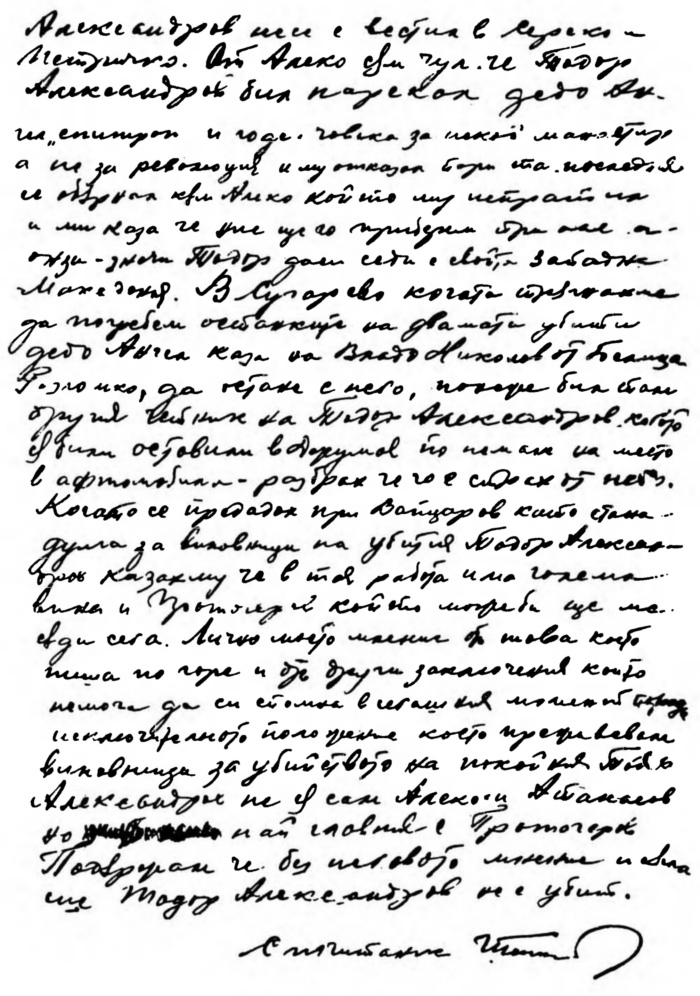 Александров не се е вестил в Серско и
Петричко. От Алеко съм чул че Тодор
Александров бил нарекал дедо Ан-
гел "епитроп и годе. човека за некой манастир
а не за революция и му отказал пари та последния
се обърнал към Алеко който му
и ми каза че ние ще го при нас а-
значи Тодор да си седи в своята Западна
Македония. В Сугарево когато тръгнахме
да погребем останките на двамата убити
дедо Ангел каза на Владо Николов от
да остане с него, понеже бил там
другия четник на Тодор Александров когото
били оставили в по немане на место
в афтомобила - разбрах че го е страх от него.
Когато се предадох при Вапцаров като стана
дума за виновници на убития Тодор Алексан-
дров казах му че в тая работа има голема
вина и Протогеров който може би ще ма
сега. Лично моето мнение от това което
пиша по горе и от други заключения които
немога да си спомня в сегашния момент поради
исключителното положение което преживевам
виновници за убийството на покойния Тодор
Александров не са сам Алеко и Атанасов
но най главния е Протогеров
Потвърждавам че без неговото мнение и воля
ще Тодор Александров не е убит.
С почитание